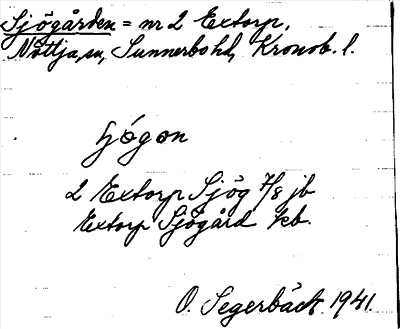 Sjögården = nr 2 Extorp,
Nöttja, sn, Sunnerbo hd, Kronob. l.
2 Extorp Sjög 7/8 jb
Extorp Sjögård kb.
O. Segerbäck 1941.